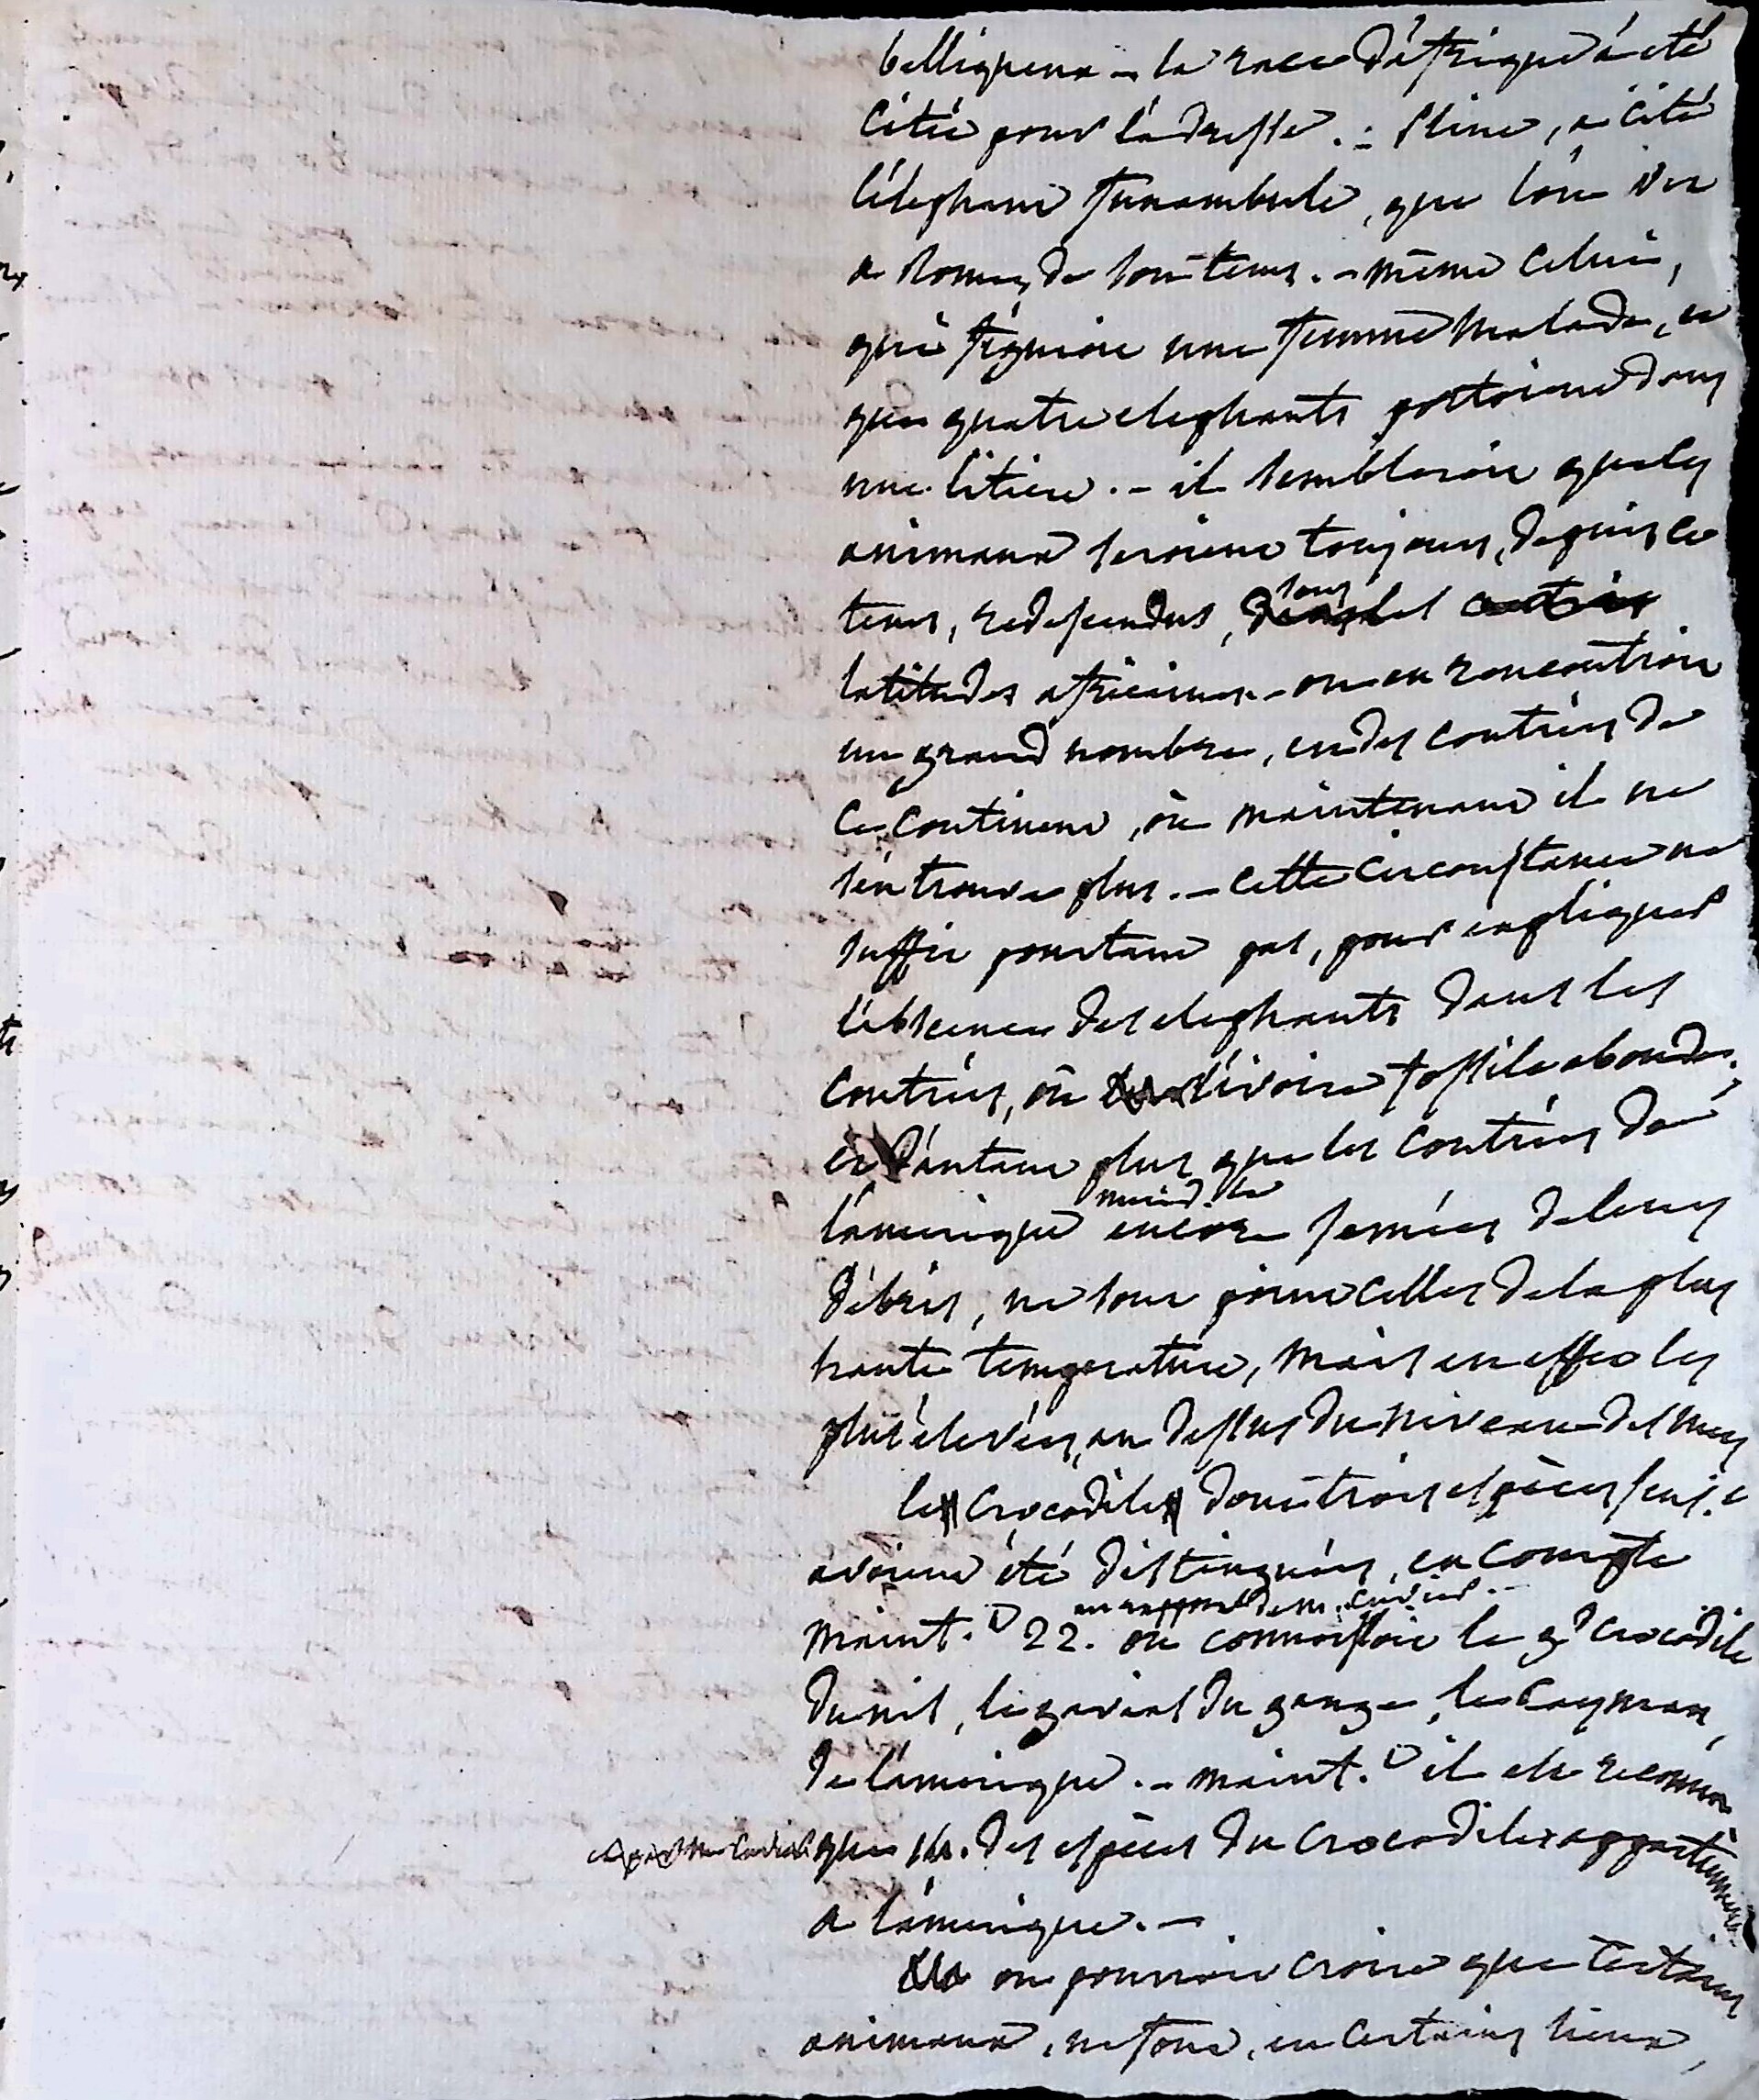 belliqueux - la race d'afrique à été
citée pour l'adresse. - Pline, a cité
l'élephant funambule, que l'on vit
a Rome, de son tems. - même celui,
qui figuroit une femme malade, et
que quatre elephants portoient dans
une litiere. - il sembleroit que les
animaux seroient toujours, depuis ce
tems, redescendus, sous les
latitudes africaines. - on en rencontroit
un grand nombre, en des contrées de
ce continent, où maintenant il ne
s'en trouve plus. - cette circonstance ne
suffit pourtant pas, pour expliquer
l'absence des elephants dans les
contrées, où l'ivoire fossile abonde,
et d'autant plus que les contrées de
l'amérique mérid.le encore semées de leurs
débris, ne sont point celles de la plus
haute temperature, mais en effet les
plus élevées, au dessus du niveau des mers
les crocodiles dont trois espèces
avoient été distinguées, en compte
maint.t 22. au rapport de m. Cuvier. - on connoissoit le g.d crocodile
du nil, le gavial du gange, le cayman,
de l'amérique. - maint.t il est reconnu
que des espèces du crocodile appartiennent
a l'amérique. -
on pourroit croire que certains
animaux, ne sont, en certains lieux,